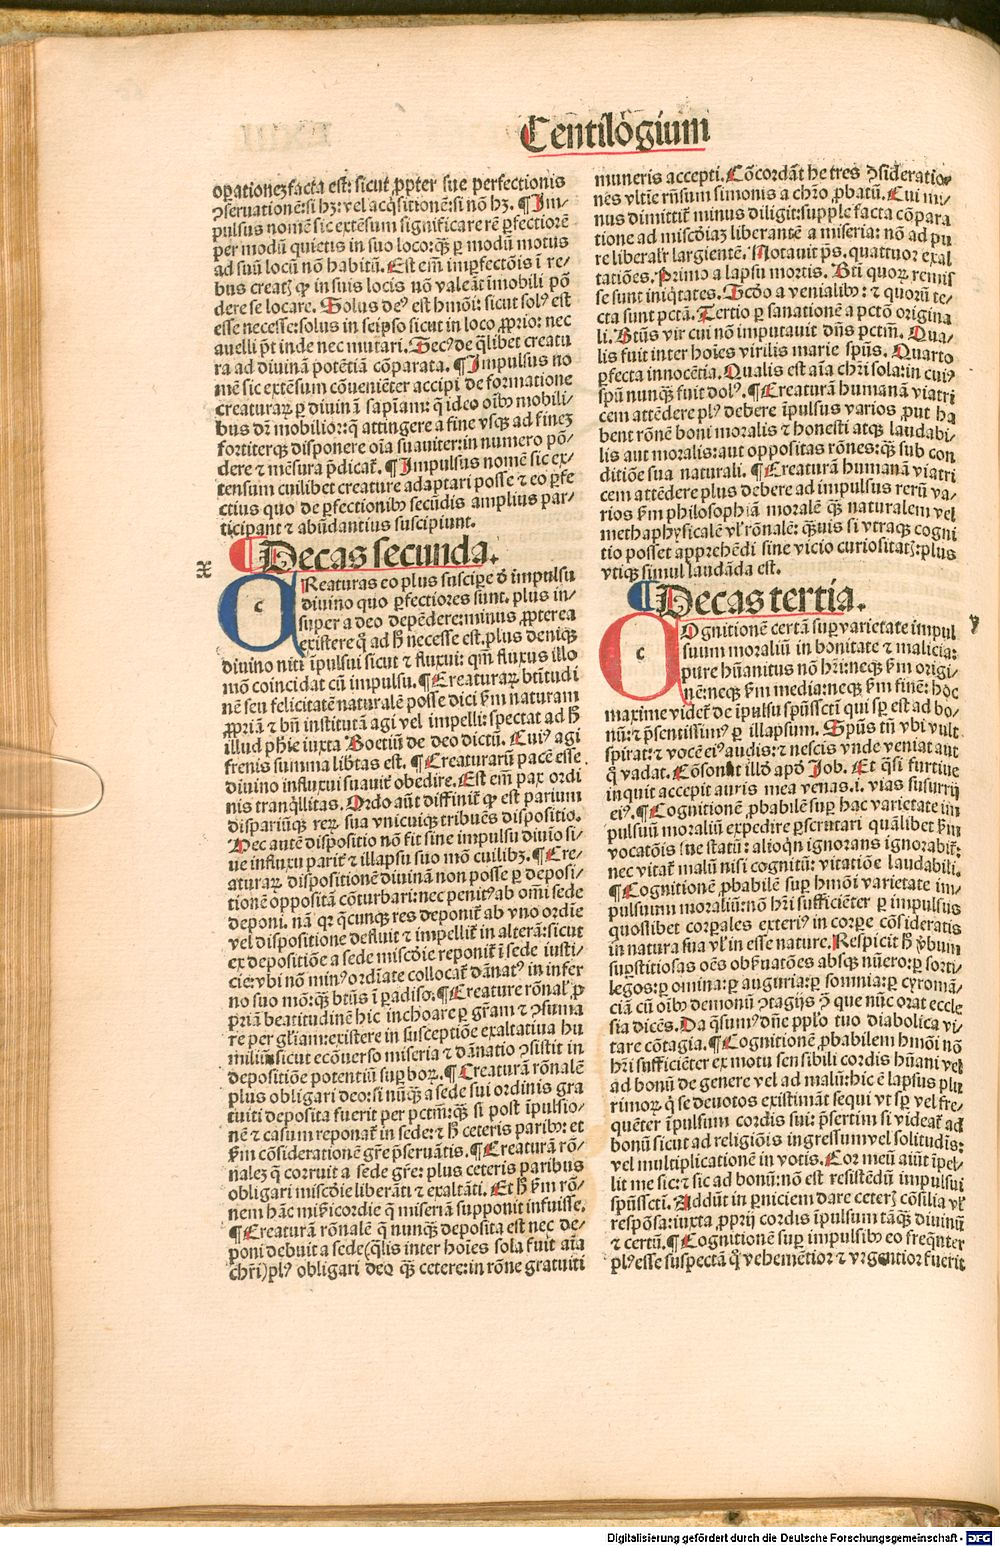 Centilogium
operationez facta est: sicut ꝓpter sue perfectionis
ꝯseruationē: si hꝫ: vel acq̇sitionē: si nō hꝫ. ¶ Im-
pulsus nomē sic extēsum significare rē ꝑfectiorē
per modū quietis in suo loco: qꝫ̄ ꝑ modū motus
ad suū locū nō habitū. Est em̄ imꝑfectōis ī re-
bus creatꝭ ꝙ in suis locis nō valeāt imobili pō
dere se locare. Solus deꝰ est hmōi: sicut solꝰ est
esse necesse: solus in seipso sicut in loco ꝓprio: nec
auelli pōt inde nec mutari. Secꝰ de q̄libet creatu
ra ad diuinā potētiā cōparata. ¶ Impulsus no
mē sic extēsum cōueniēter accipi de formatione
creaturaꝝ ꝑ diuinā sapīam: q̄ ideo oībꝰ mobili-
bus dr̄ mobilior: q̄ attingere a fine vsqꝫ ad finez
fortiterqꝫ disponere oīa suauiter: in numero pō-
dere ⁊ mēsura p̄dicat̄. ¶ Impulsus nomē sic ex-
tensum cuilibet creature adaptari posse ⁊ eo ꝑfe
ctius quo de ꝑfectionibꝰ secūdis amplius par-
ticipant ⁊ abūdantius suscipiunt.
¶ Decas secunda.
x
c
Reaturas eo plus suscipe ꝺ impulsu
diuino quo ꝑfectiores sunt. plus in-
super a deo depēdere: minus ꝓpterea
existere qꝫ ad h̄ necesse est. plus deniqꝫ
diuino niti īpulsui sicut ⁊ fluxui: qm̄ fluxus illo
mō coincidat cū impulsu. ¶ Creaturaꝝ btitudi
nē seu felicitatē naturalē posse dici ẜm naturam
ꝓpriā ⁊ bn̄ institutā agi vel impelli: spectat ad h̄
illud phīe iuxta Boetiū de deo dictū. Cuiꝰ agi
frenis summa libtas est. ¶ Creaturarū pacē esse
diuino influxui suauit̄ obedire. Est em̄ pax ordi
nis tranq̇llitas. Ordo aūt diffinit̄ ꝙ est parium
dispariūqꝫ reꝝ sua vnicuiqꝫ tribuēs dispositio.
Hec autē dispositio nō fit sine impulsu diuīo si-
ue influxu parit̄ ⁊ illapsu suo mō cuilibꝫ. ¶ Cre-
aturaꝝ dispositionē diuinā non posse ꝑ deposi-
tionē oppositā cōturbari: nec penitꝰ ab om̄i sede
deponi. nā qꝛ q̄cunqꝫ res deponit̄ ab vno ordīe
vel dispositione defluit ⁊ impellit̄ in alterā: sicut
ex depositiōe a sede miscdīe reponit̄ ī sede iusti-
cie: vbi nō minꝰ ordīate collocat̄ dānatꝰ in infer
no suo mō: qꝫ̄ btūs ī ꝑadiso. ¶ Creature rōnal̓ ꝓ
priā beatitudinē hic inchoare ꝑ gr̄am ⁊ ꝯsuma
re per gl̄iam: existere in susceptiōe exaltatiua hu
miliū: sicut ecōuerso miseria ⁊ dānatio ꝯsistit in
depositiōe potentiū supboꝝ. ¶ Creaturā rōnalē
plus obligari deo: si nūqꝫ a sede sui ordinis gra
tuiti deposita fuerit per pctm̄: qꝫ̄ si post īpulsio-
nē ⁊ casum reponat̄ in sede: ⁊ h̄ ceteris paribꝰ: et
ẜm cōsiderationē gr̄e p̄seruātis. ¶ Creaturā rō-
nalez q̄ corruit a sede gr̄e: plus ceteris paribus
obligari miscdīe liberāti ⁊ exaltāti. Et h̄ ẜm rō-
nem hāc mīcordie q̄ miseriā supponit infuisse.
¶ Creaturā rōnalē q̄ nunqꝫ deposita est nec de-
poni debuit a sede (q̄lis inter hoīes sola fuit aīa
chr̄i) plꝰ obligari deo qꝫ̄ cetere: in rōne gratuiti
muneris accepti. Cōcordāt he tres ꝯsideratio-
nes vltīe rn̄sum simonis a chr̄o ꝓbatū. Cui mi-
nus dimittit̄ minus diligit: supple facta cōpara
tione ad miscdīaz liberantē a miseria: nō ad pu
re liberalr̄ largientē. Notauit ps̄. quattuor exal
tatiōes. Primo a lapsu mortis. Bti quoꝝ remis
se sunt iniq̇tates. Scdo a venialibꝰ: ⁊ quorū te-
cta sunt pctā. Tertio ꝑ sanationē a pctō origina
li. Btūs vir cui nō imputauit dn̄s pctm̄. Qua-
lis fuit inter hoīes virilis marie spūs. Quarto
ꝑfecta innocētia. Qualis est aīa chr̄i sola: in cuiꝰ
spū nunqꝫ fuit dolꝰ. ¶ Creaturā humanā viatri
cem attēdere plꝰ debere īpulsus varios ꝓut ha
bent rōnē boni moralis ⁊ honesti atqꝫ laudabi-
lis aut moralis: aut oppositas rōnes: qꝫ̄ sub con
ditiōe sua naturali. ¶ Creaturā humanā viatri
cem attēdere plus debere ad impulsus rerū va-
rios ẜm philosophiā moralē qꝫ̄ naturalem vel
methaphysicalē vl̓ rōnalē: qꝫuis si vtraqꝫ cogni
tio posset apprehēdi sine vicio curiositatꝭ: plus
vtiqꝫ simul laudāda est.
¶ Decas tertia.
y
c
Ognitionē certā sup varietate impul
suum moraliū in bonitate ⁊ malicia:
pure hūanitus nō hr̄i: neqꝫ ẜm origi-
nē: neqꝫ ẜm media: neqꝫ ẜm finē: hoc
maxime videt̄ de īpulsu spūssctī qui sꝑ est ad bo-
nū: ⁊ p̄sentissimꝰ ꝑ illapsum. Spūs tn̄ vbi vult
spirat: ⁊ vocē eiꝰ audis: ⁊ nescis vnde veniat aut
q̊ vadat. Cōsonat illd̓ apd̓ Job. Et q̄si furtiue
inquit accepit auris mea venas .i. vias susurrij
eiꝰ. ¶ Cognitionē ꝓbabilē sup hac varietate im
pulsuū moraliū expedire ꝑscrutari quālibet ẜm
vocatōis sue statū: alioqn̄ ignorans ignorabit̄:
nec vitat̄ malū nisi cognitū: vitatiōe laudabili.
¶ Cognitionē ꝓbabilē sup hmōi varietate im-
pulsuum moraliū: nō hr̄i sufficiēter ꝑ impulsus
quoslibet corpales exteriꝰ in corpe cōsideratis
in natura sua vl̓ in esse nature. Respicit h̄ ẏbum
supstitiosas oēs obẜuatōes absqꝫ nūero: ꝑ sorti-
legos: ꝑ omina: ꝑ auguria: ꝑ somnia: ꝑ cyromā-
ciā cū oībꝰ demonū ꝯtagijs ꝯ que nūc orat eccle
sia dicēs. Da qs̄umꝰ dn̄e pplo tuo diabolica vi-
tare cōtagia. ¶ Cognitionē ꝓbabilem hmōi nō
hr̄i sufficiēter ex motu sensibili cordis hūani vel
ad bonū de genere vel ad malū: hic ē lapsus plu
rimoꝝ q̇ se deuotos existimāt sequi vt sꝑ vel fre-
quēter īpulsum cordis sui: p̄sertim si videat̄ ad
bonū sicut ad religiōis ingressum vel solitudīs:
vel multiplicationē in votis. Cor meū aiūt īpel-
lit me sic: ⁊ sic ad bonū: nō est resistēdū impulsui
spūssctī. Addūt in ꝑniciem dare ceterꝭ cōsilia vl̓
respōsa: iuxta ꝓprij cordis īpulsum tāqꝫ̄ diuinū
⁊ certū. ¶ Cognitionē sup impulsibꝰ eo freqn̄ter
plꝰ esse suspectā q̊ vehemētior ⁊ vrgentior fuerit
Digitalisierung gefördert durch die Deutsche Forschungsgemeinschaft - DFG